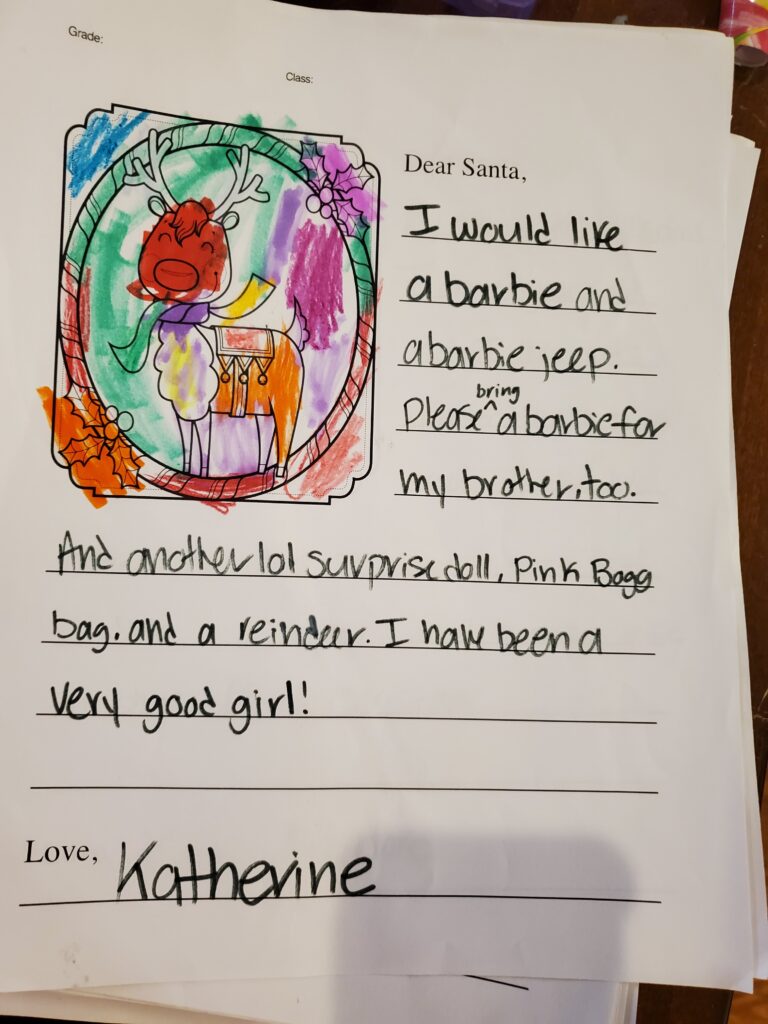 Grade:
Class:
Dear Santa,
I would like
a barbie and
a barbie jeep.
Please ^bring a barbie for
my brother, too.
And another lol surprise doll, Pink Bogg
bag. and a reindeer. I have been a
very good girl!
Love, Katherine